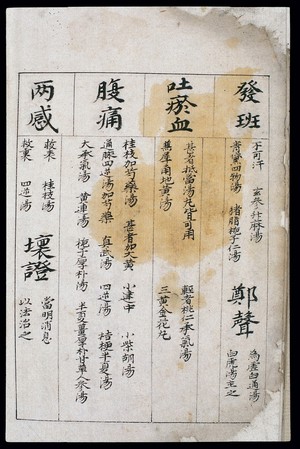 發班
不可汗 玄參升麻湯
黃蘗四物湯 猪胆梔子仁湯
鄭聲
為虛白通湯
白虎湯主之
吐瘀血
甚者抵當湯丸皆可用
輕者桃仁承氣湯
犀角地黃湯
三黃金花丸
腹痛
桂枝加芍藥湯 甚者加大黃 小建中 小柴胡湯
通脉四逆湯加芍藥 真武湯 四逆湯 桔梗半夏湯
大承氣湯 黃連湯 梔子厚朴湯 半夏薑厚朴甘草人參湯
两感
救表 桂枝湯
救裏 四逆湯
壞證
當明消息
以法治之